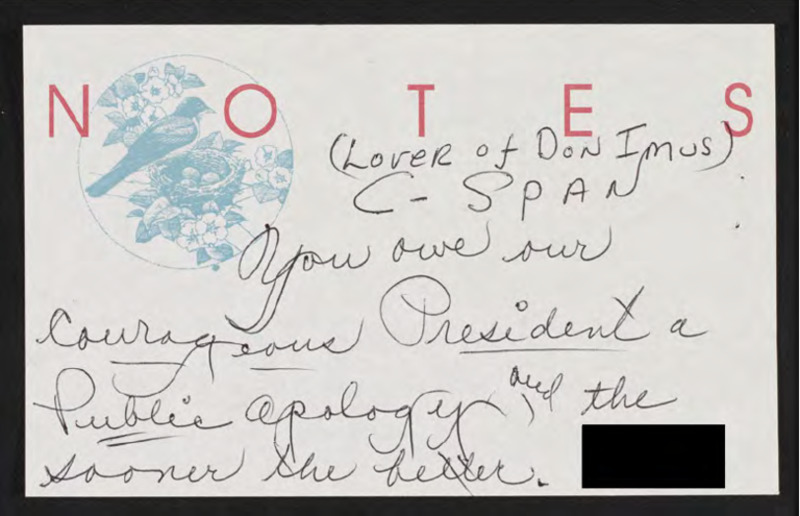 NOTES
(Lover of Don Imus)
C-SPAN
You owe our
courageous President a
Public apology, and the
sooner the better.